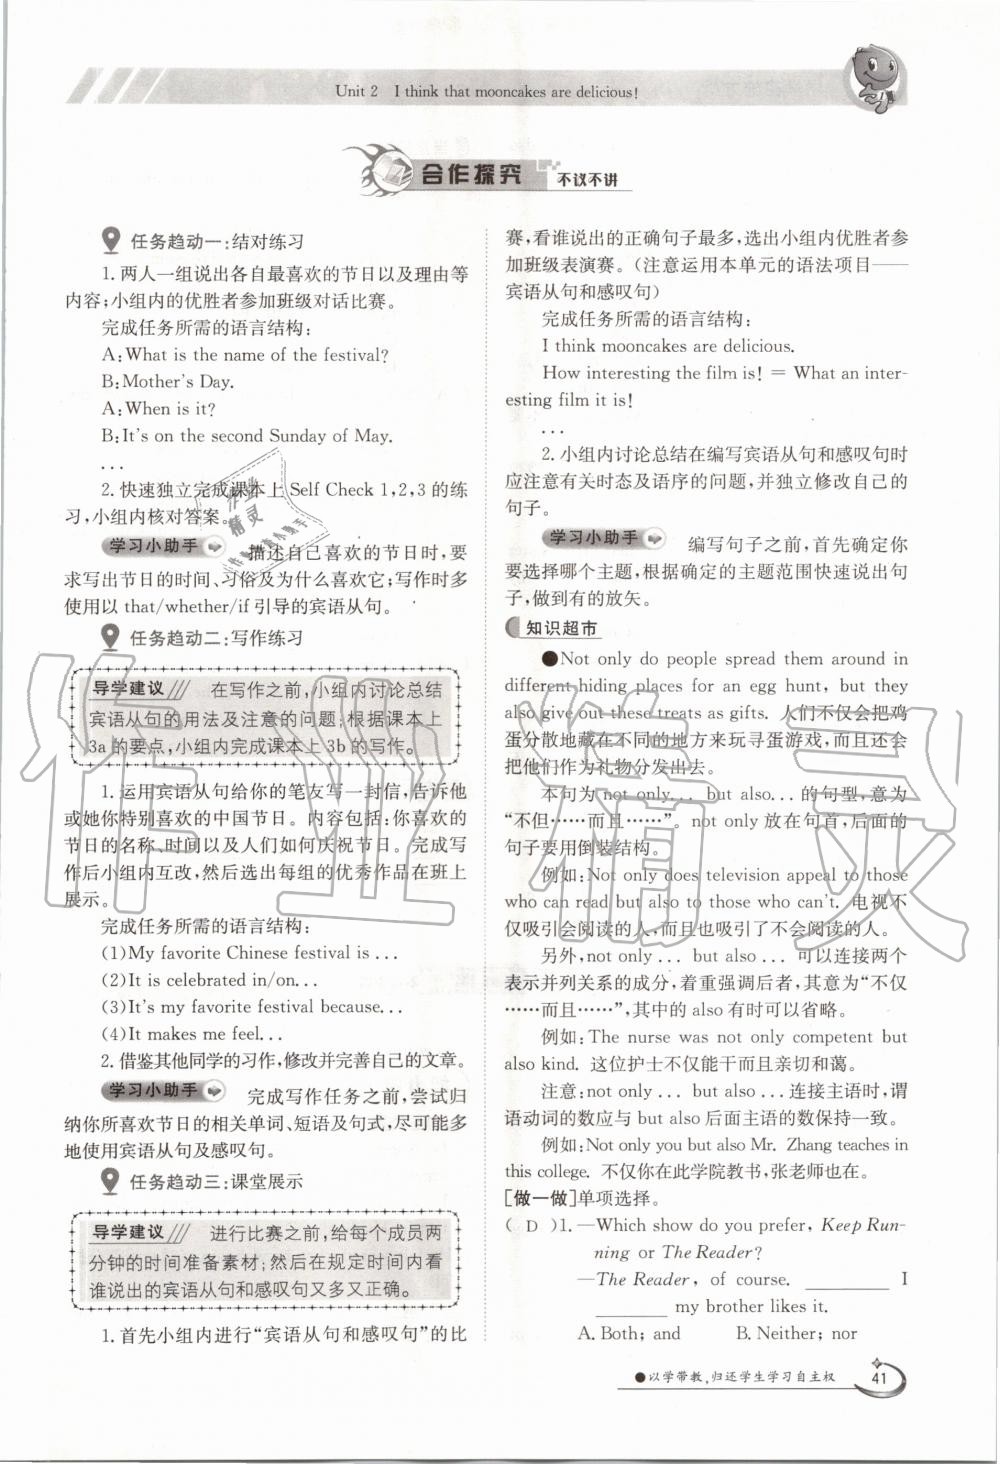 Unit 2 I think that mooncakes are delicious!
合作探究 不议不讲
任务趋动一:结对练习
1.两人一组说出各自最喜欢的节日以及理由等
内容;小组内的优胜者参加班级对话比赛。
完成任务所需的语言结构:
A:What is the name of the festival?
B:Mother's Day.
A:When is it?
B:It's on the second Sunday of May.
...
2.快速独立完成课本上 Self Check 1,2,3 的练
习,小组内核对答案。
学习小助手 描述自己喜欢的节日时,要
求写出节日的时间、习俗及为什么喜欢它;写作时多
使用以 that/whether/if 引导的宾语从句。
任务趋动二:写作练习
导学建议 在写作之前,小组内讨论总结
宾语从句的用法及注意的问题;根据课本上
3a 的要点,小组内完成课本上 3b 的写作。
1.运用宾语从句给你的笔友写一封信,告诉他
或她你特别喜欢的中国节日。内容包括:你喜欢的
节日的名称、时间以及人们如何庆祝节日。完成写
作后小组内互改,然后选出每组的优秀作品在班上
展示。
完成任务所需的语言结构:
(1)My favorite Chinese festival is...
(2)It is celebrated in/on...
(3)It's my favorite festival because...
(4)It makes me feel...
2.借鉴其他同学的习作,修改并完善自己的文章。
学习小助手 完成写作任务之前,尝试归
纳你所喜欢节日的相关单词、短语及句式,尽可能多
地使用宾语从句及感叹句。
任务趋动三:课堂展示
导学建议 进行比赛之前,给每个成员两
分钟的时间准备素材;然后在规定时间内看
谁说出的宾语从句和感叹句又多又正确。
1.首先小组内进行“宾语从句和感叹句”的比
赛,看谁说出的正确句子最多,选出小组内优胜者参
加班级表演赛。(注意运用本单元的语法项目——
宾语从句和感叹句)
完成任务所需的语言结构:
I think mooncakes are delicious.
How interesting the film is! = What an inter-
esting film it is!
...
2.小组内讨论总结在编写宾语从句和感叹句时
应注意有关时态及语序的问题,并独立修改自己的
句子。
学习小助手 编写句子之前,首先确定你
要选择哪个主题,根据确定的主题范围快速说出句
子,做到有的放矢。
知识超市
●Not only do people spread them around in
different hiding places for an egg hunt, but they
also give out these treats as gifts. 人们不仅会把鸡
蛋分散地藏在不同的地方来玩寻蛋游戏,而且还会
把他们作为礼物分发出去。
本句为 not only... but also...的句型,意为
“不但……而且……”。not only 放在句首,后面的
句子要用倒装结构。
例如:Not only does television appeal to those
who can read but also to those who can't. 电视不
仅吸引会阅读的人,而且也吸引了不会阅读的人。
另外,not only ... but also... 可以连接两个
表示并列关系的成分,着重强调后者,其意为“不仅
……而且……”,其中的 also 有时可以省略。
例如:The nurse was not only competent but
also kind. 这位护士不仅能干而且亲切和蔼。
注意:not only ... but also...连接主语时,谓
语动词的数应与 but also 后面主语的数保持一致。
例如:Not only you but also Mr. Zhang teaches in
this college. 不仅你在此学院教书,张老师也在。
[做一做]单项选择。
( D )1.—Which show do you prefer, Keep Run-
ning or The Reader?
—The Reader, of course. ________ I
________ my brother likes it.
A. Both; and B. Neither; nor
●以学带教,归还学生学习自主权
41
作业精灵